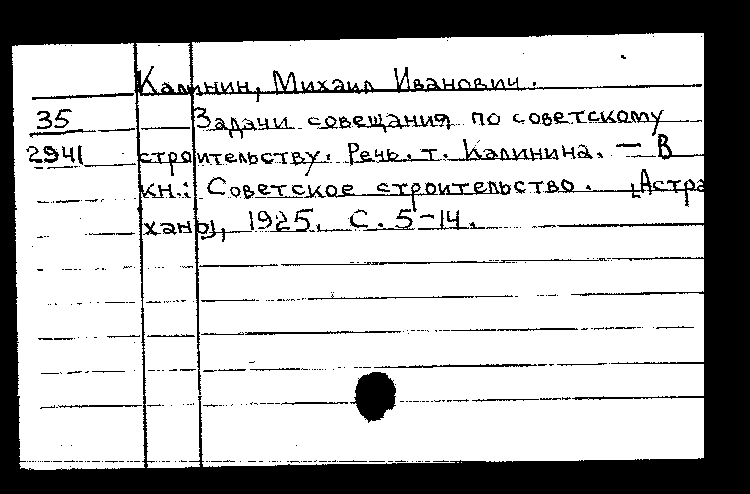 Калинин, Михаил Иванович.
35 Задачи совещания по советскому
2941 строительству. Речь. т. Калинина. — В
кн.: Советское строительство. [Астра
хань], 1925. С. 5-14.